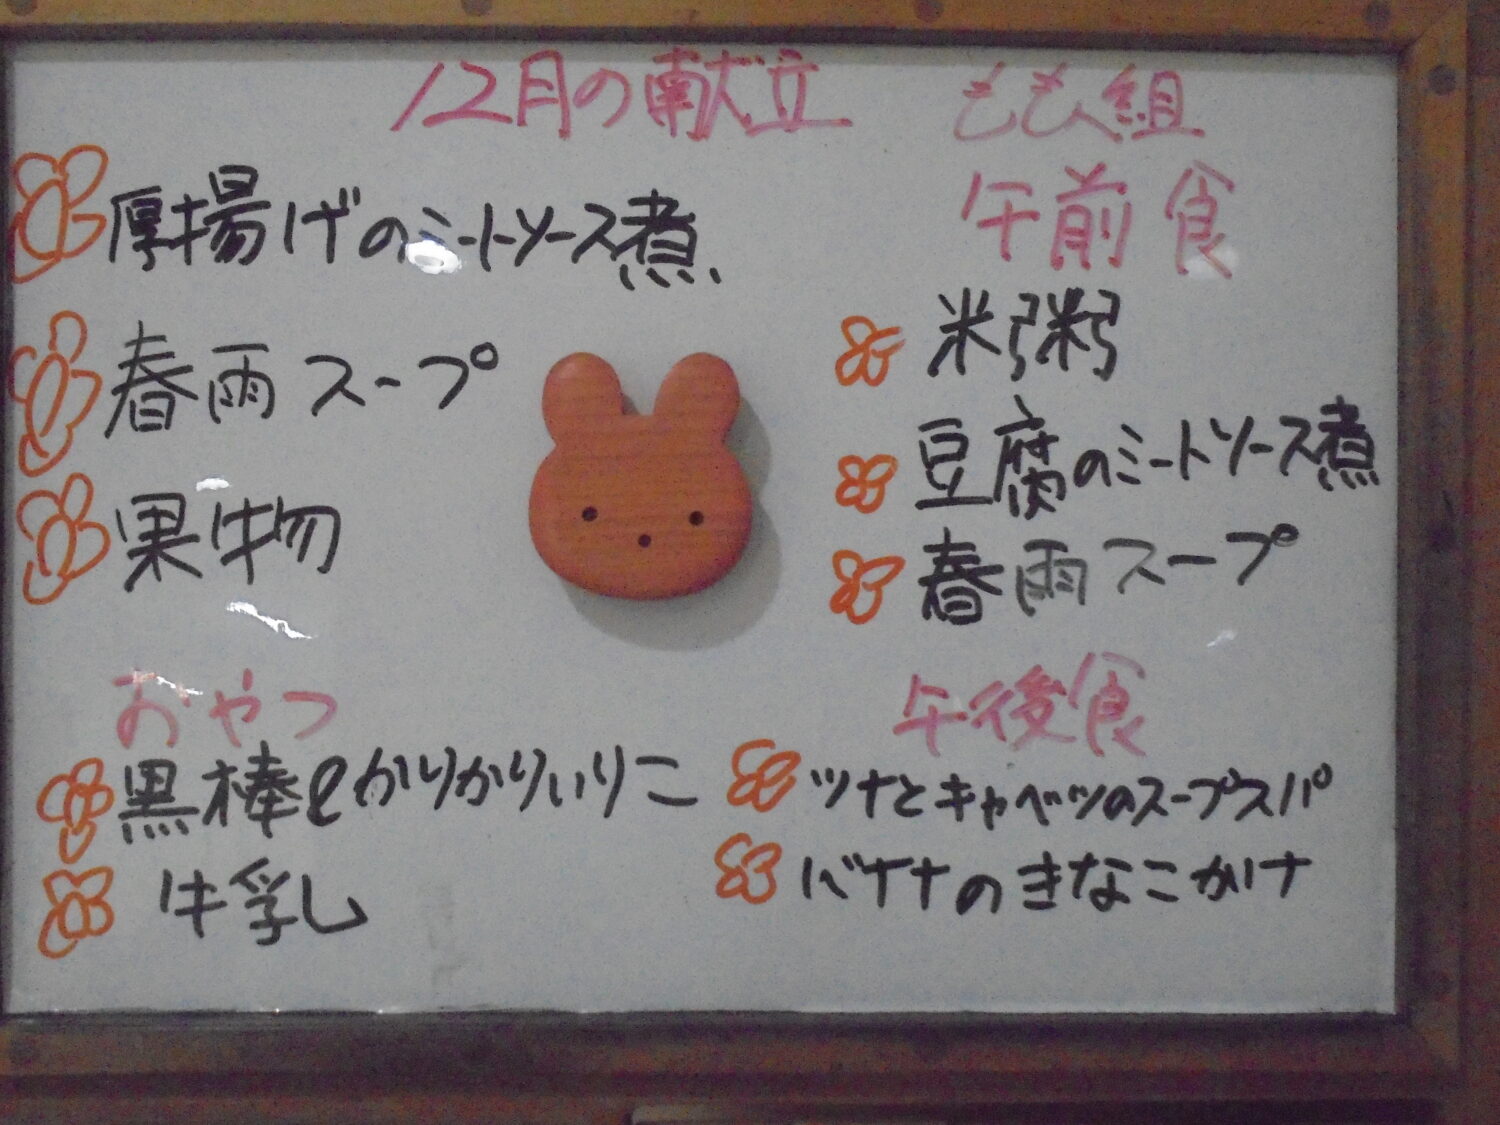 12月の献立
厚揚げのミートソース煮
春雨スープ
果物
おやつ
黒棒とかりかりいりこ
牛乳
もも組
午前食
米粥
豆腐のミートソース煮
春雨スープ
午後食
ツナとキャベツのスープスパ
バナナのきなこかけ